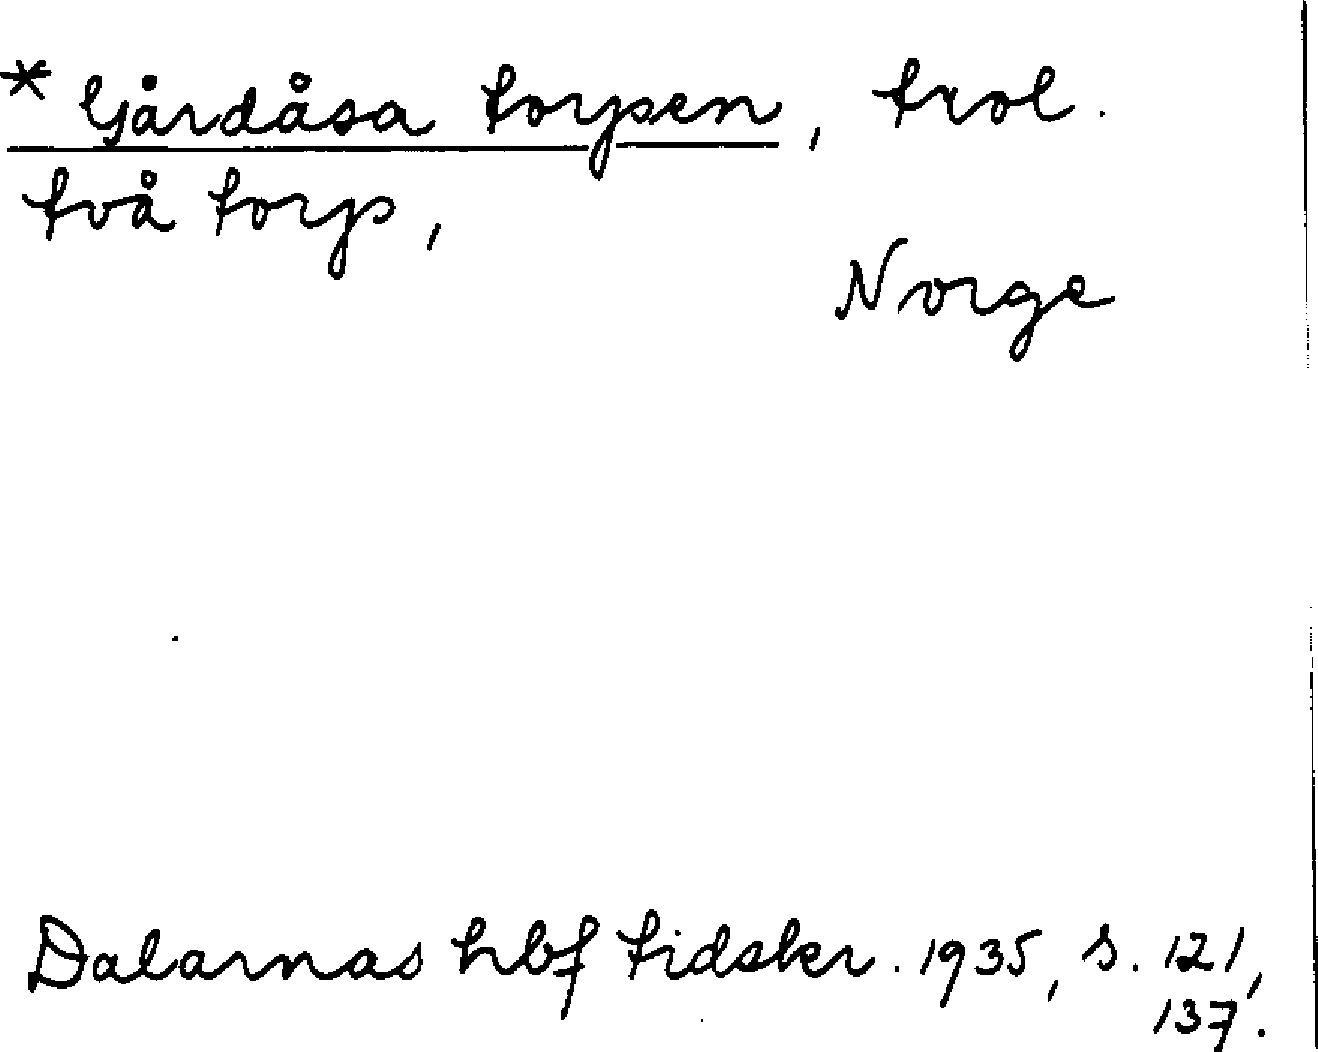 * Gårdåsa torpen, trol.
två torp,
Norge
Dalarnas hbf tidskr. 1935, s. 121,
137.